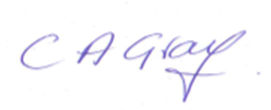 C A Gray